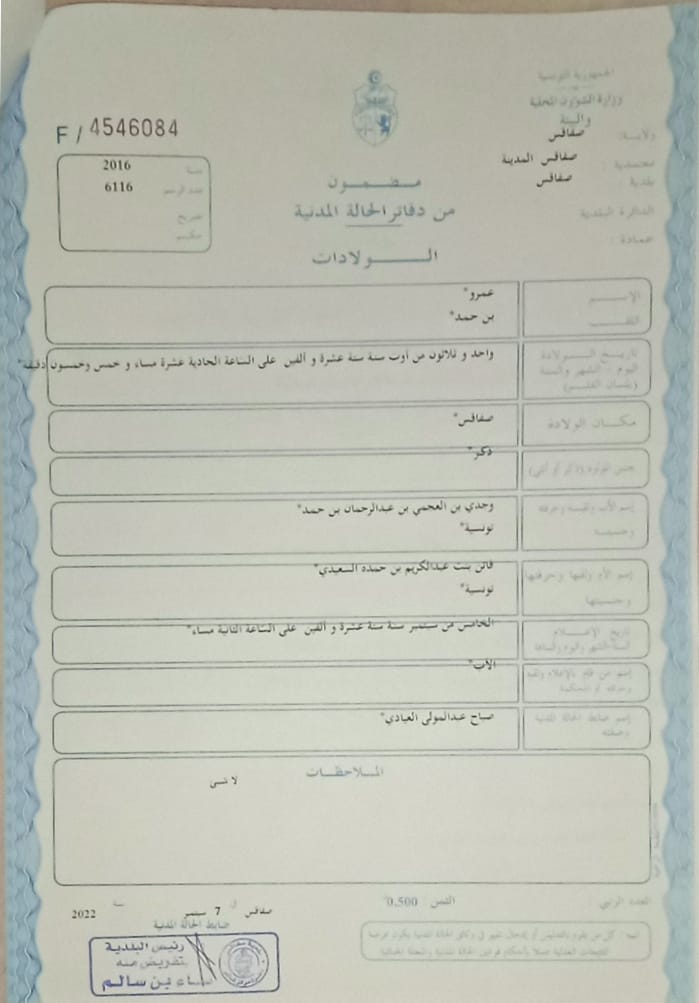 الجمهورية التونسية
وزارة الشؤون المحلية
والبيئة
ولاية: صفاقس
معتمدية: صفاقس المدينة
بلدية: صفاقس
الدائرة البلدية
عمادة:
F / 4546084
سنة 2016
عدد الرسم 6116
تصريح
حكم
مضمون
من دفاتر الحالة المدنية
الولادات
الإسم عمرو*
اللقب بن حمد*
تاريخ الولادة
اليوم - الشهر والسنة
(بلسان القلم)
واحد و ثلاثون من أوت سنة ستة عشرة و ألفين على الساعة الحادية عشرة مساء و خمس وخمسون دقيقة*
مكان الولادة صفاقس*
جنس المولود (ذكر أو أنثى) ذكر*
إسم الأب ولقبه وحرفته وجدي بن العجمي بن عبدالرحمان بن حمد*
وجنسيته تونسية*
إسم الأم ولقبها وحرفتها فاتن بنت عبدالكريم بن حمده السعيدي*
وجنسيتها تونسية*
تاريخ الإعلام الخامس من سبتمبر سنة ستة عشرة و ألفين على الساعة الثانية مساء*
السنة-الشهر واليوم والساعة
إسم من قام بالإعلام ولقبه الأب*
وحرفته أو المحكمة
إسم ضابط الحالة المدنية صباح عبدالمولى العيادي*
وصفته
الملاحظات
لا شئ
العدد الرتبي
الثمن 0.500
صفاقس في 7 سبتمبر سنة 2022
ضابط الحالة المدنية
رئيس البلدية
بتفويض منه
بن سالم
تنبيه: كل من يقوم بالتدليس أو إدخال تغيير في وثائق الحالة المدنية يكون عرضة
للتبعات العدلية عملا بأحكام قوانين الحالة المدنية والمجلة الجنائية